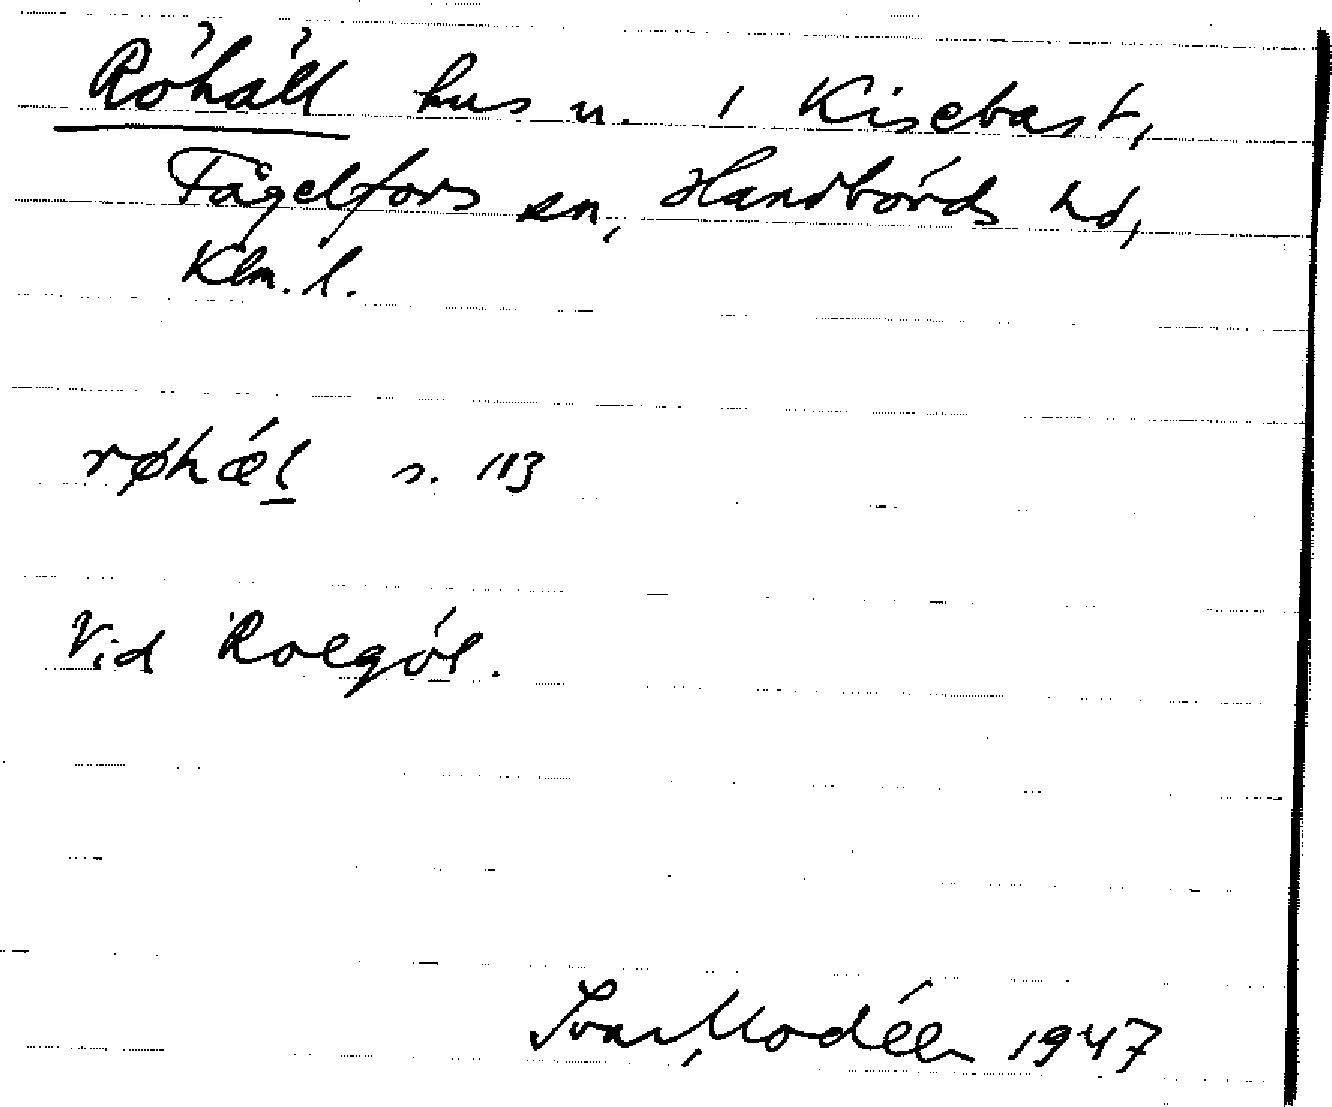 Röhäll hus n. i Kisebast,
Fågelfors sn, Handbörds hd,
Klm. l.
røhǽl s. 113
Vid Roegöl.
Ivar Modéer 1947